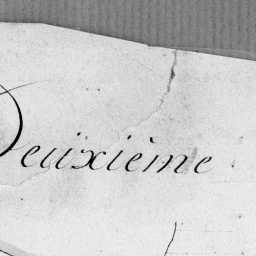 Deuxième